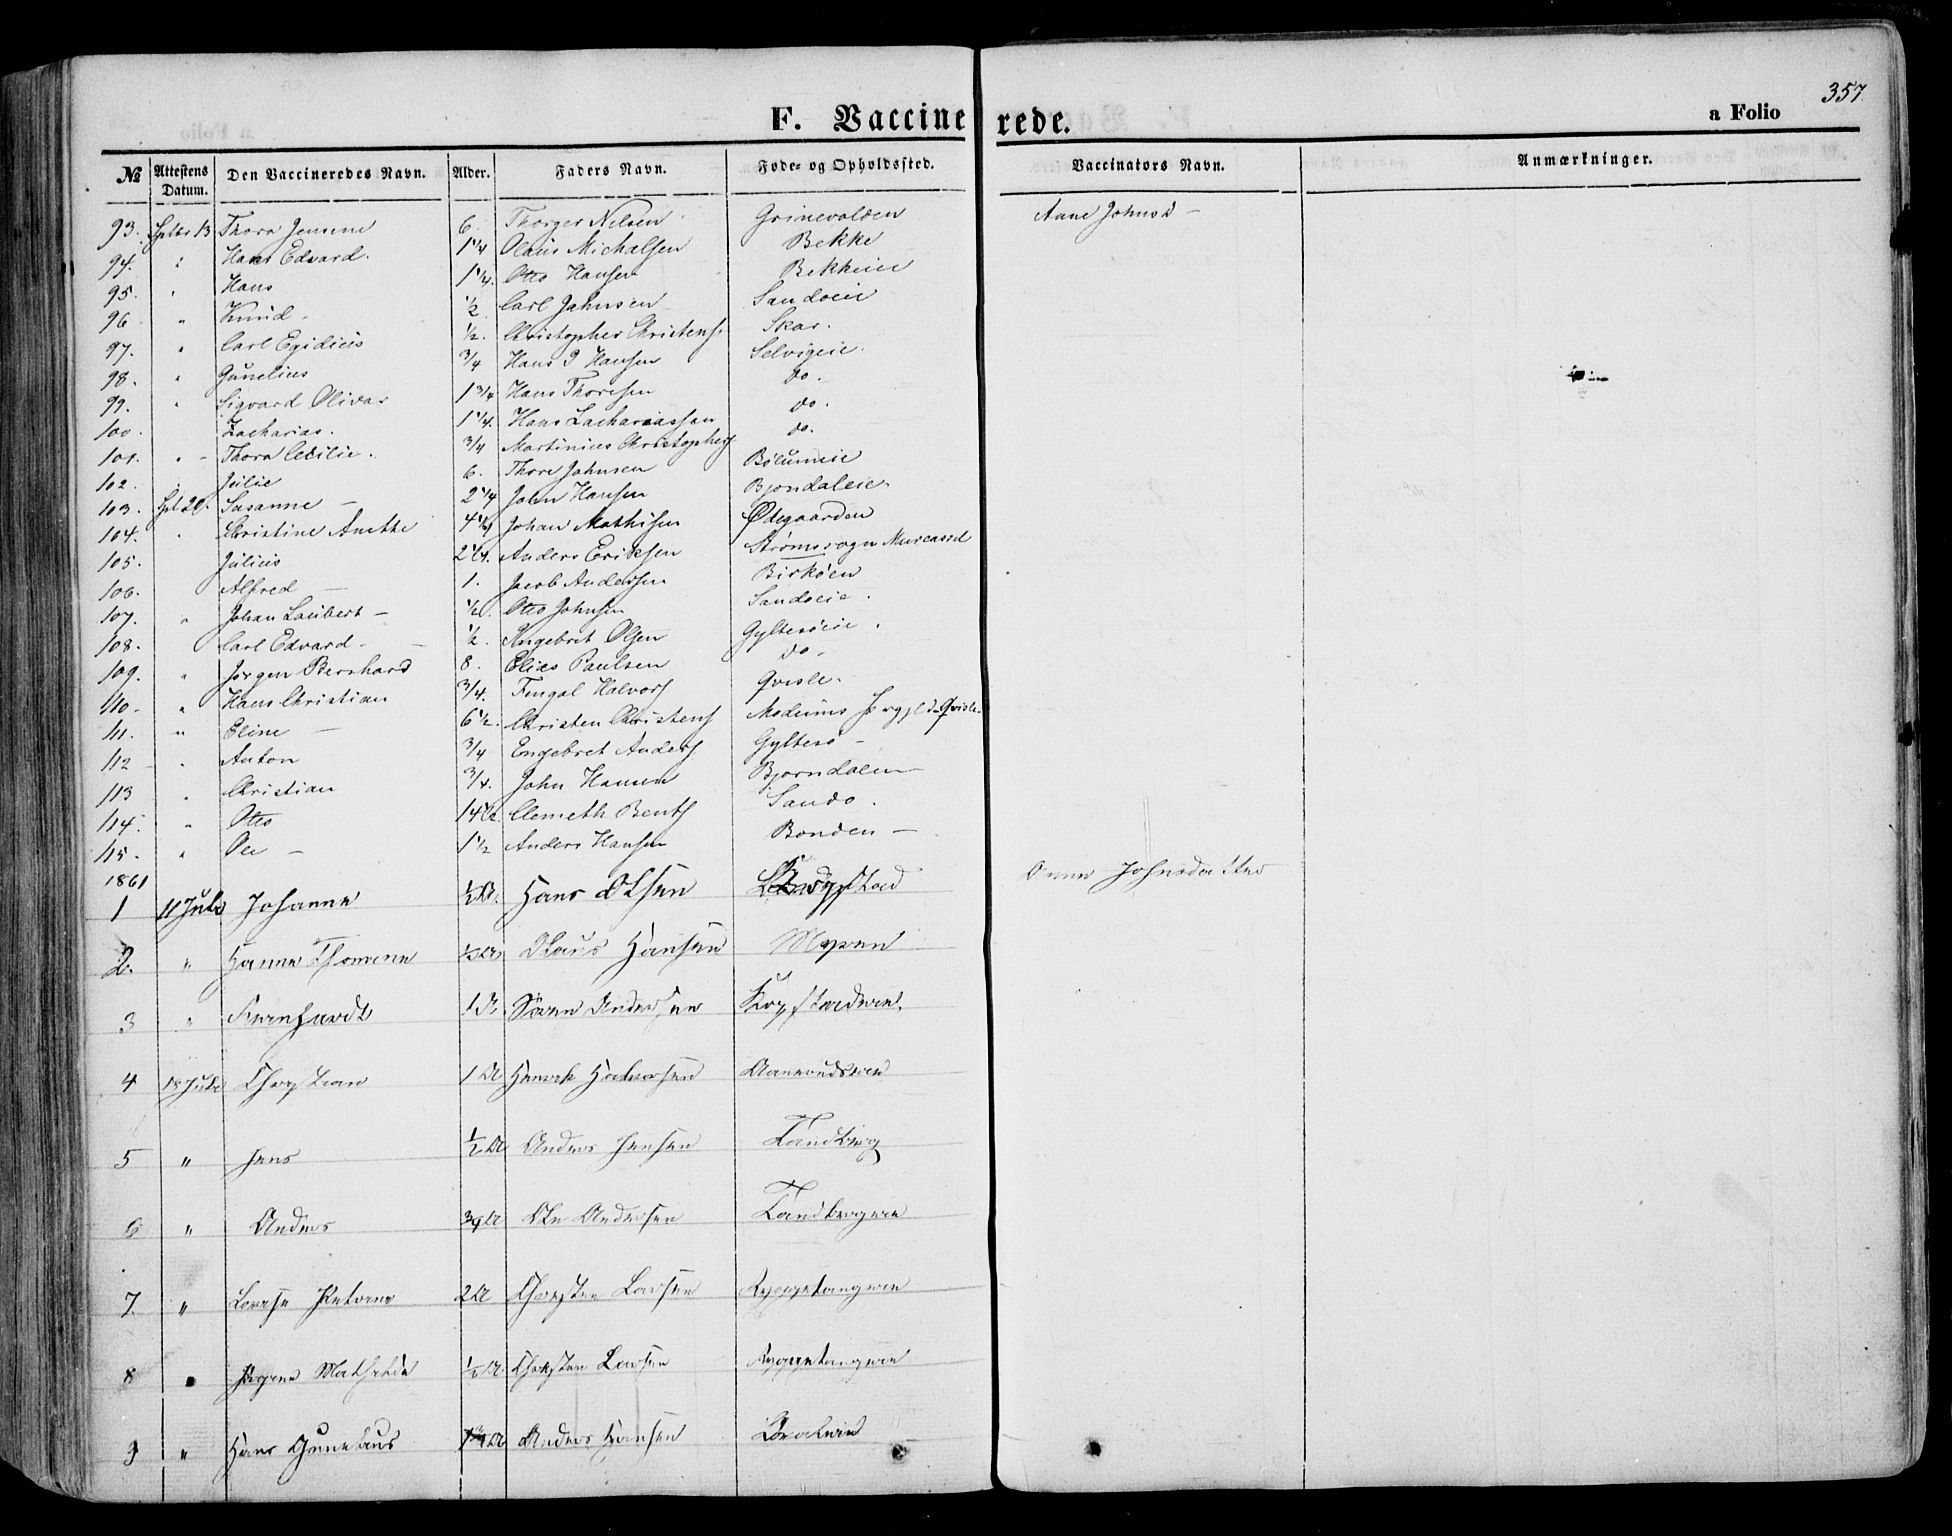 357
F. Vaccinerede. a Folio
№ Attestens Datum. Den Vaccineredes Navn. Alder. Faders Navn. Føde- og Opholdssted. Vaccinators Navn. Anmærkninger.
93. Septbr 13 Thora Jensine 6. Thorger Nelsen Grinevolden Anne Johnsd
94. " Hans Edvard. 1 1/4 Olaus Michalsen Bekke
95. " Hans 1 1/4. Otto Hansen Bekkeie
96 " Knud 1/2 Carl Johnsen Sandoeie
97. " Carl Egidius 1/2. Christopher Christens. Skar.
98. " Gunelius 3/4 Hans P Hansen Selvigeie.
99. " Sigvard Olivar 1 3/4 Hans Thoresen do.
100. Zacharias. 1 1/4. Hans Zachariassen do.
101. " Thora Cecilie. 3/4 Martinius Christophers do.
102. Julie 6. Thore Johnsen
103. Sept 20. Susanne 2 1/4 John Hansen Bjondaleie.
104. " Christine Anette 4 John Mathisen Ødegaarden
105. Julius 2 1/4. Anders Eriksen Strømssogn
106. Alfred 1. Jacob Andersen Birköen
107. " Johan Laubert 1/2. Otto Johnsen Sandoeie.
108. Carl Edvard. 1/2. Engebret Olsen Gylteröeie.
109. " Jørgen Bernhard 8. Elias Paulsen do.
110. " Hans Christian 3/4. Fingal Halvors Qvisle.
111. " Eline 6 1/2. Christen Christens Modums Qvisle
112 " Anton 3/4 Engebret Anders Gylterö
113 " Christian 3/4. John Hansen Bjorndalen
114. " Otto 14 Clemeth Bents Sando.
115. " Ole 1 1/2 Anders Hansen Bonden
1861
1 11 Juli Johanne 1/2 Hans Olsen Anne Johnsdatter
2. " Hanne Thomine 1/2 Olaus Hansen Myren
3 " Bernhardt 1 Søren Andersen
4 18 Juli Thorstian 1 Henrik Halvorsen
5 " Jens 1/2 Anders Jensen Tandberg
6 " Anders 3/4 Ole Andersen Tandbergeie
7. " Lovise Petrine 2 Thorsten Larsen Ryggetangeie
8 " Jørgine Mathilde 1/2 Thorsten Larsen Ryggetangeie
9 " Hans Gunelius Anders Hansen